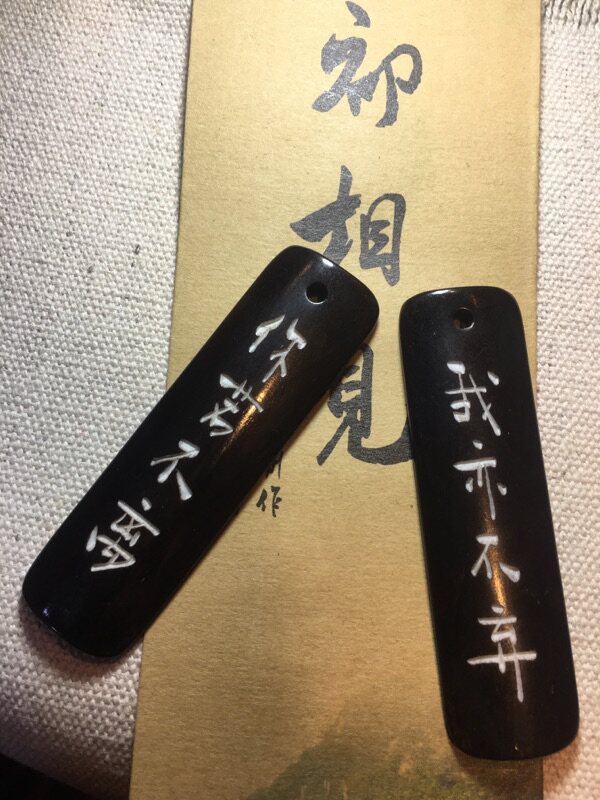 初相見
作
你若不离
我亦不弃